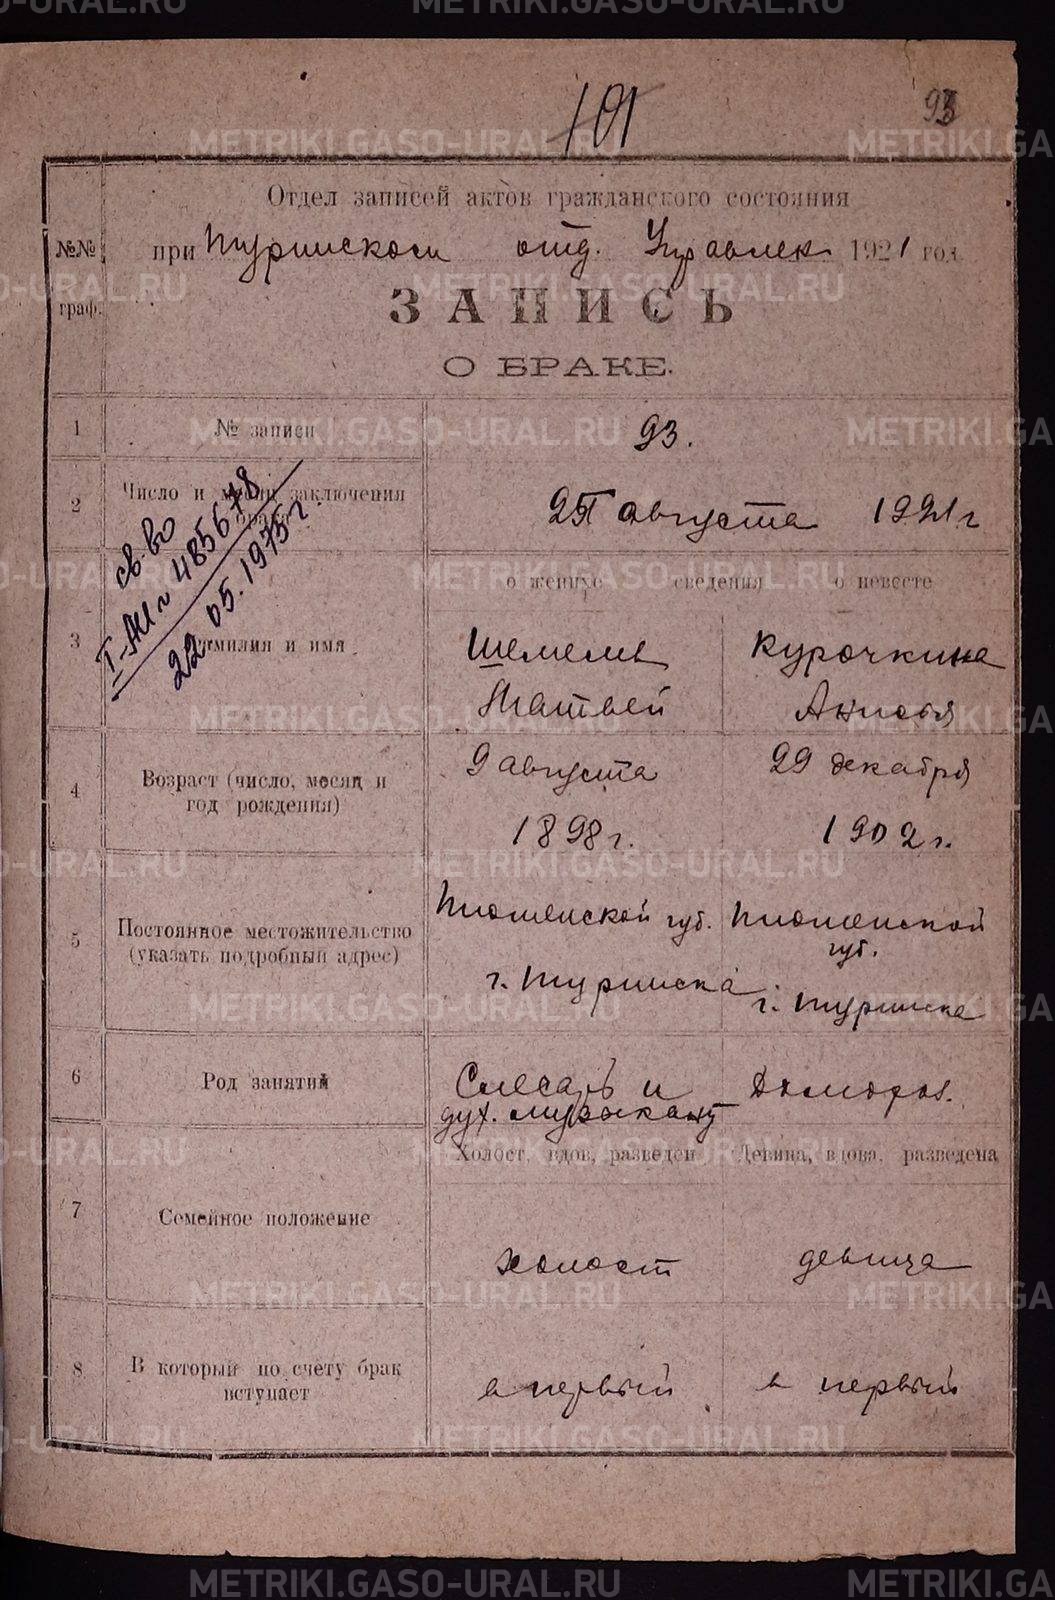 101
93
Отдел записей актов гражданского состояния
№№ граф.
при Туринском отд. Управлен. 1921 год.
ЗАПИСЬ
О БРАКЕ.
1 № записи 93.
2 Число и месяц заключения брака 25го августа 1921 г
св-во
I-АИ № 485678
22 05.1975 г.
о женихе сведения о невесте
3 Фамилия и имя
Шемелев Курочкина
Матвей Анисья
4 Возраст (число, месяц и год рождения)
9 августа 29 декабря
1898 г. 1902 г.
5 Постоянное местожительство
(указать подробный адрес)
Тюменской губ. Тюменской губ.
г. Туринска г. Туринске
6 Род занятий
Слесарь и Домохоз.
дух. музыкант
Холост, вдов, разведен Девица, вдова, разведена
7 Семейное положение
холост девица
8 В который по счету брак
вступает
в первый в первый
METRIKI.GASO-URAL.RU